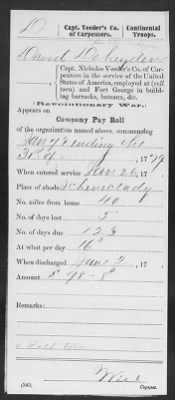 D
Capt. Veeder's Co. of Carpenters.
Continental Troops.
David
Capt. Nicholas Veeder's Co. of Car-
penters in the service of the United
States of America, employed at (roll
torn) and Fort George in build-
ing barracks, bateaux, &c.
(Revolutionary War.)
Appears on
Company Pay Roll
of the organization named above, commencing
ending the
31st of 1779
When entered service 26, 177
Place of abode Schenectady
No. miles from home 40
No. of days lost 5
No. of days due 123
At what per day 16s
When discharged June 2, 177
Amount £ 98-8s
Remarks:
(545)
Copyist.